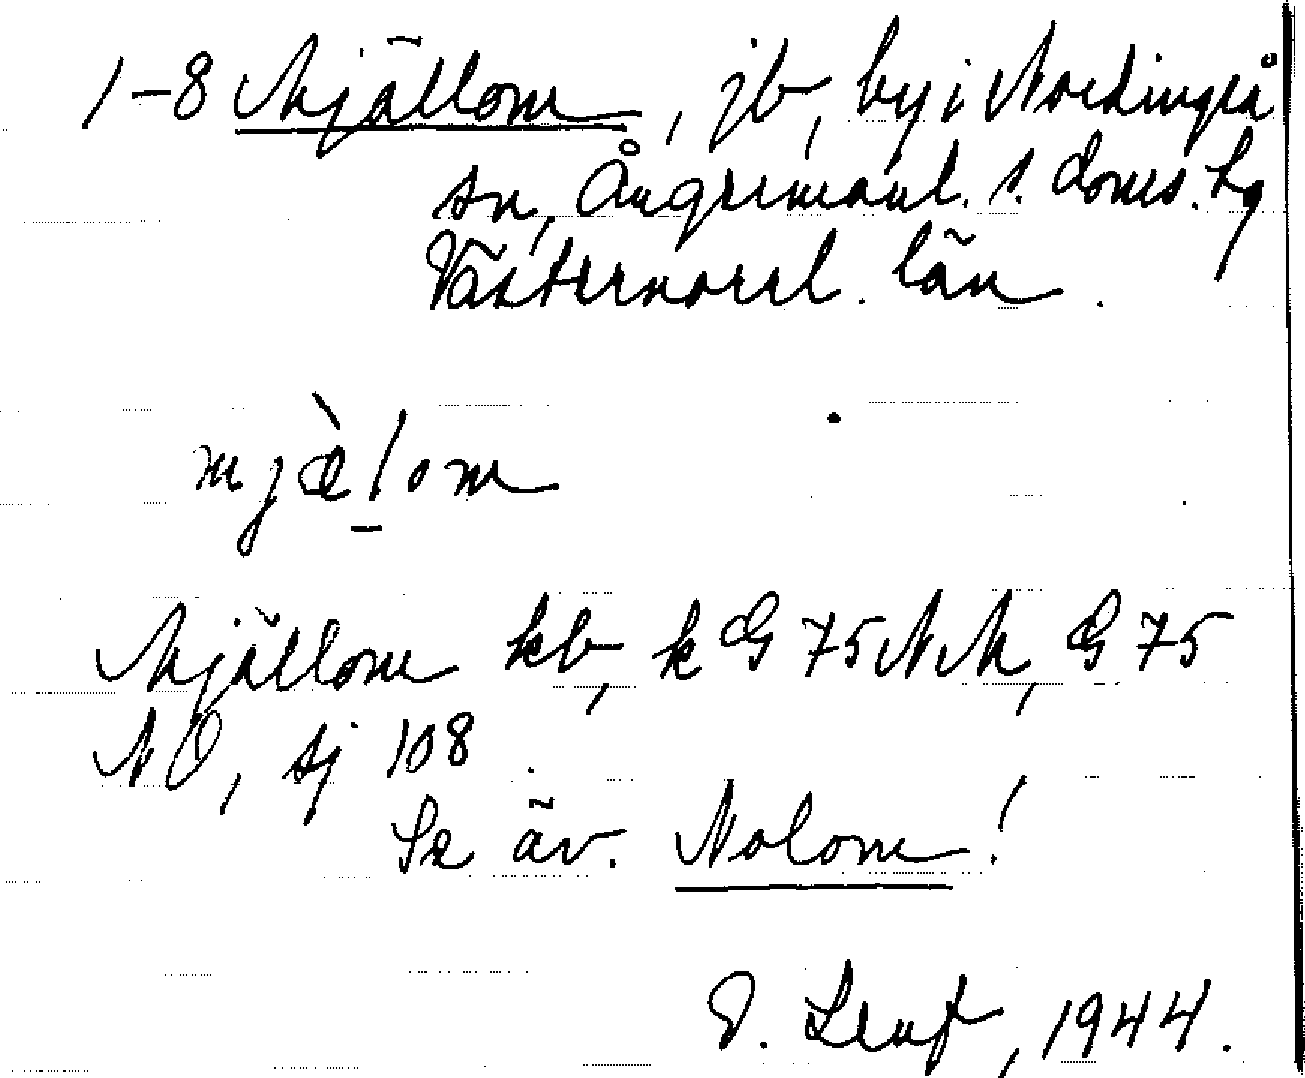 1-8 Mjällom, jb, by i Nordingrå
sn, Ångermanl. s. doms. hg
Västernorrl. län.
mjæ̀lom
Mjällom kb, k G 75 NM, G 75
NO, sj 108.
Se äv. Nolom!
O. Leuf, 1944.